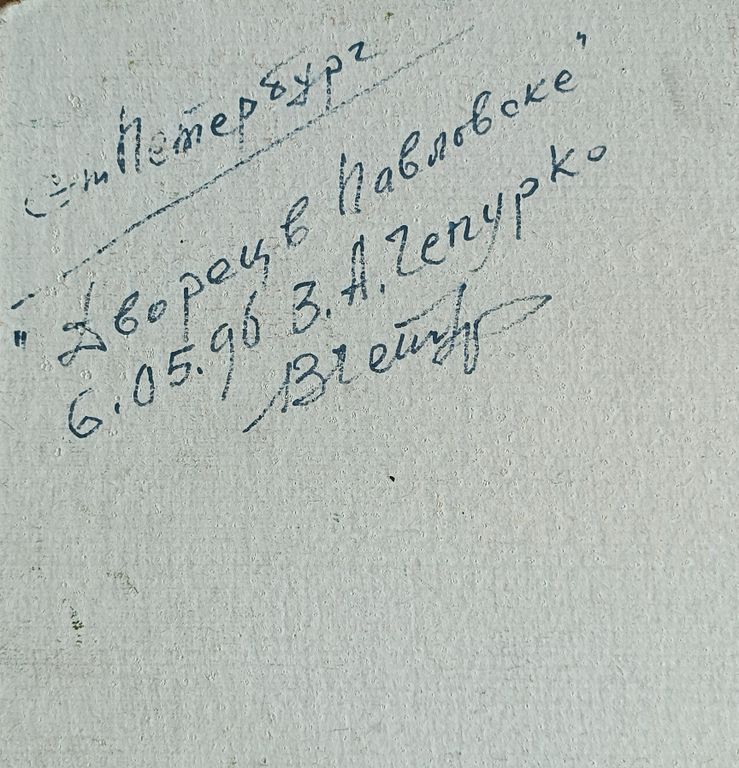 С=т Петербург
"Дворец в Павловске"
6.05.96 З.А.Чепурко